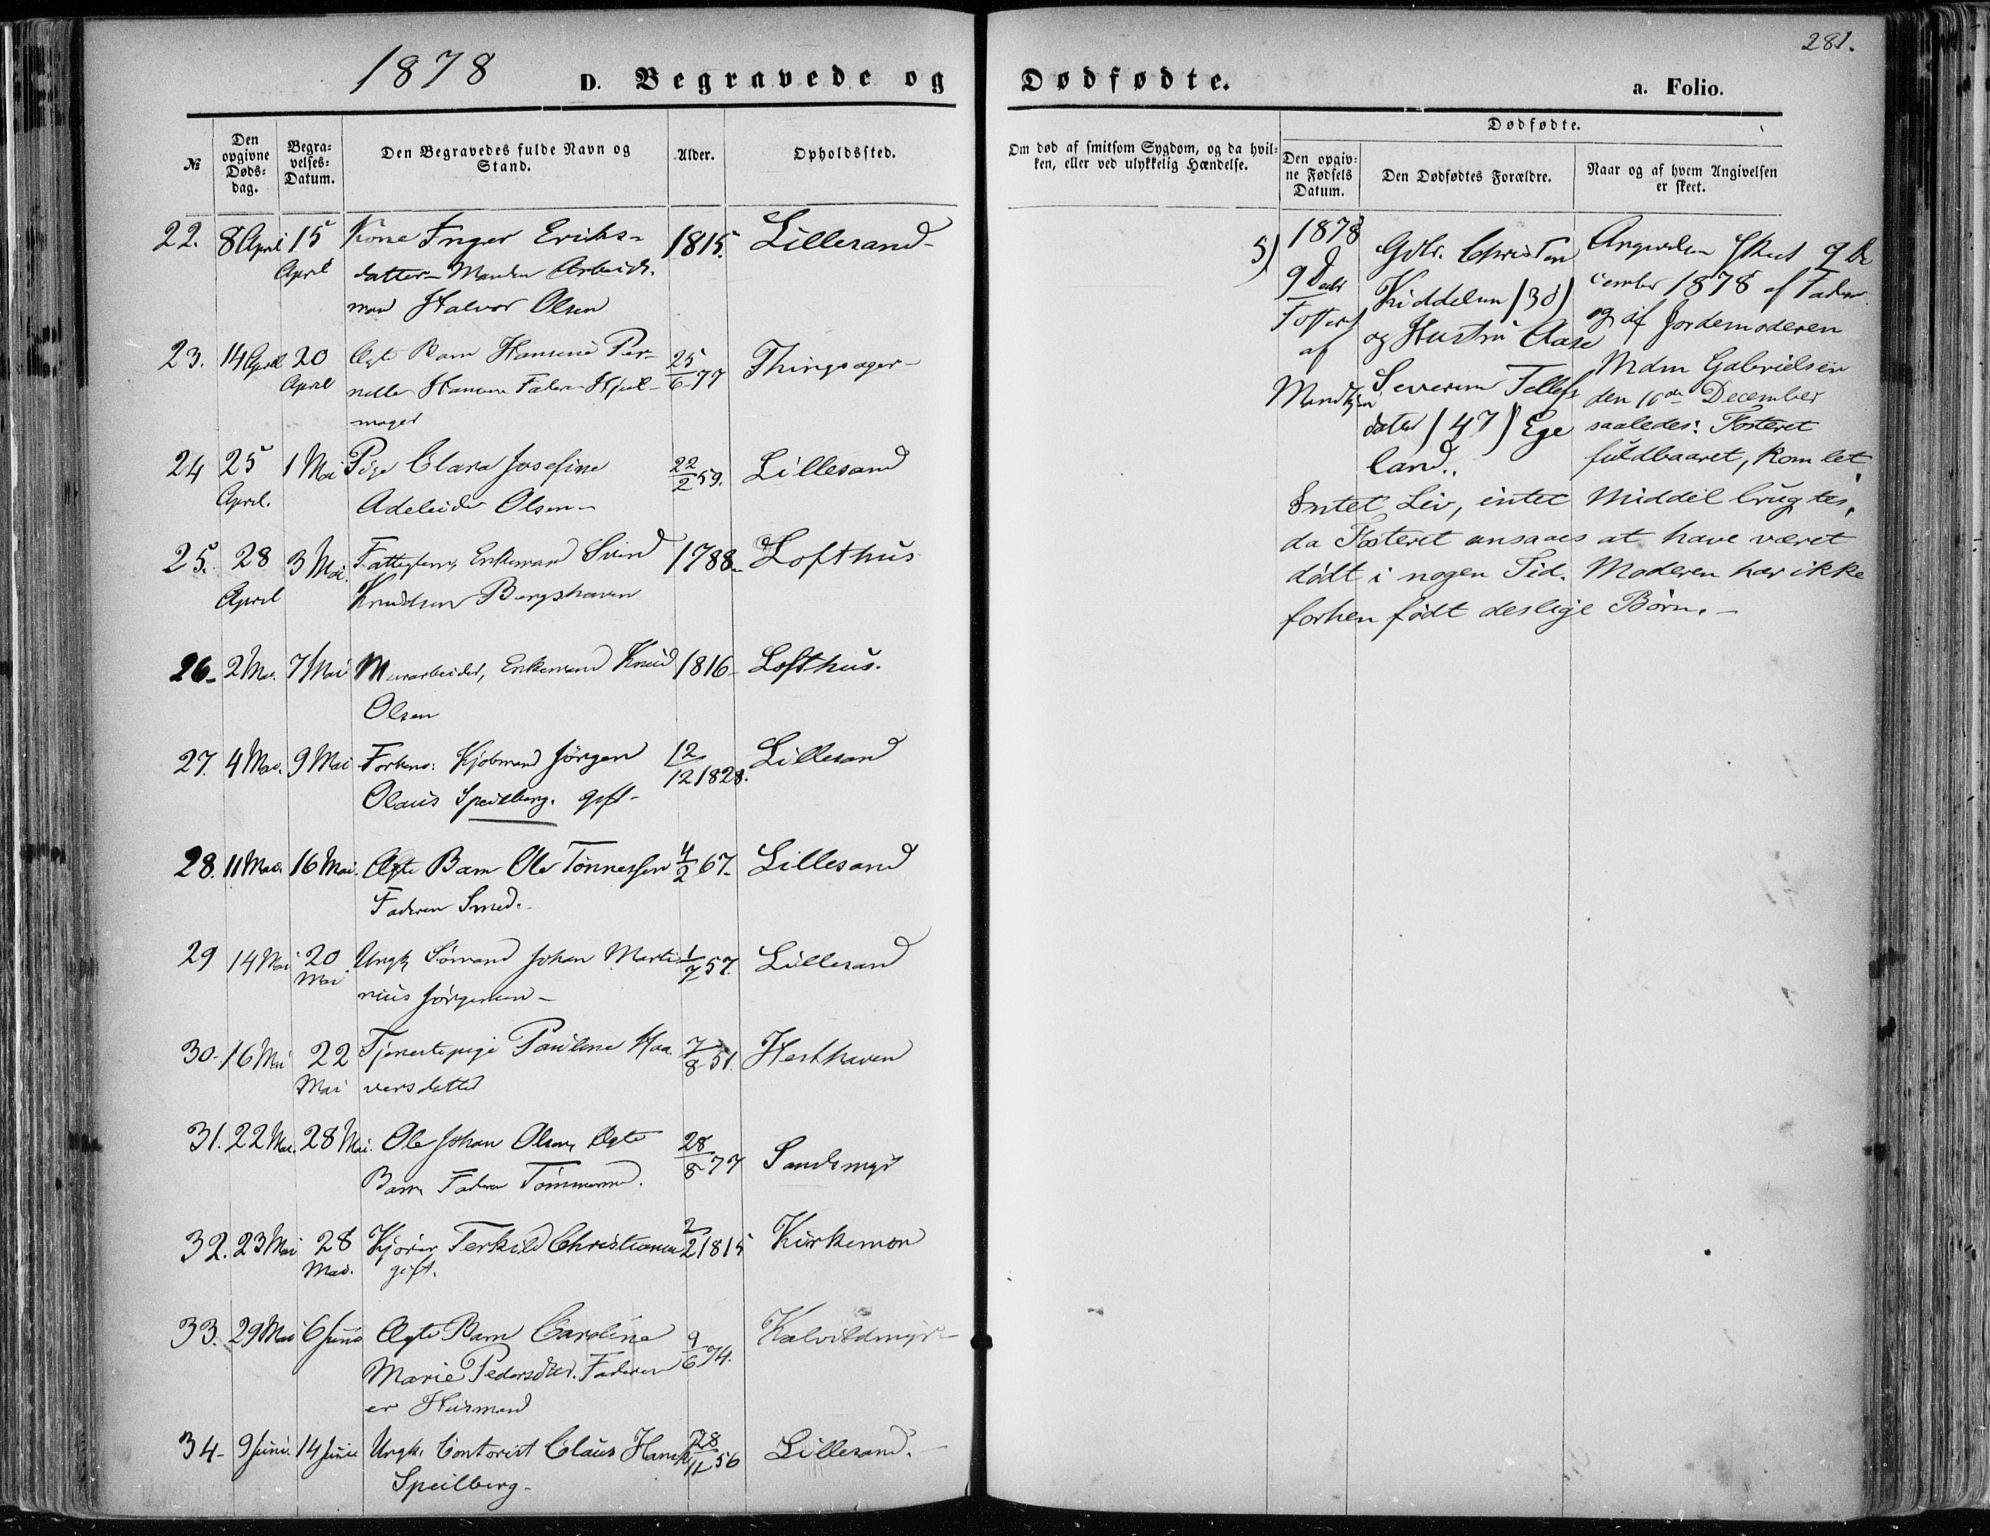 1878
D. Begravede og Dødfødte.
281.
a. Folio.
№
Den opgivne Døds-dag.
Begra-velses-Datum.
Den Begravedes fulde Navn og Stand.
Alder.
Opholdssted.
Om død af smitsom Sygdom, og da hvil-ken, eller ved ulykkelig Hændelse.
Dødfødte.
Den opgiv-ne Fødsels Datum.
Den Dødfødtes Forældre.
Naar og af hvem Angivelsen er skeet.
22. 8 April 15 April Kone Inger Eriks- 1815. Lillesand-
datter- Manden Arbeids.
mand Halvor Olsen
23. 14 April 20 April Ægt Barn Hansine Per- 25/6 77 Thingsager-
nelle Hansen Fader Hjul-
mager
24 25 April. 1 Mai Pige Clara Josefine 22/2 59. Lillesand
Adeleide Olsen-
25. 28 April 3 Mai. Fattiglem, Enkemand Svend 1788- Lofthus
Knudsen Bergshaven
26- 2 Mai. 7 Mai Murarbeider, Enkemand Knud 1816- Lofthus.
Olsen
27. 4 Mai. 9 Mai Forhen: Kjøbmand Jørgen 12/12 1828. Lillesand
Olaus Speilberg. gift-
28. 11 Mai. 16 Mai. Ægte Barn Ole Tønnessen 4/2 67- Lillesand
Faderen Smed.-
29 14 Mai 20 Mai Ungk Sømand Johan Marti 1/7 57. Lillesand
nius Jørgensen-
30- 16 Mai 22 Mai Tjenestepige Pauline Haa 7/8 51. Hesthaven
versdatter
31. 22 Mai. 28 Mai. Ole Johan Olsen, Ægte 28/8 77 Sandsmyr
Barn Faderen Tømmermd.
32. 23 Mai 28 Mai. Kjører Terkild Christiansen 2/2 1815 Kirkemon
gift.
33. 29 Mai 6 Juni Ægte Barn Caroline 9/6 74. Kalvildmyr-
Marie Pedersdtter. Faderen
er Husmand
34- 9 Juni. 14 Juni Ungk. Contorist Claus Hansen 28/11 56 Lillesand.-
Speilberg-
5) 1878
9 Decbr
Fosteret
af
Mandkjøn
Gdbr. Christen
Kiddelsen (38)
og Hustru Aase
Severine Tellefs
datter (47) Ege
land..
Angivelsen skeet 9 De
cember 1878 af Faderen
og af Jordemoderen
Mdm Gabrielsen
den 10de December
saaledes: Fosteret
fuldbaaret, kom let
Intet Liv, intet Middel brugtes,
da Fosteret ansaaes at have været
dødt i nogen Tid. Moderen har ikke
forhen født deslige Børn.-